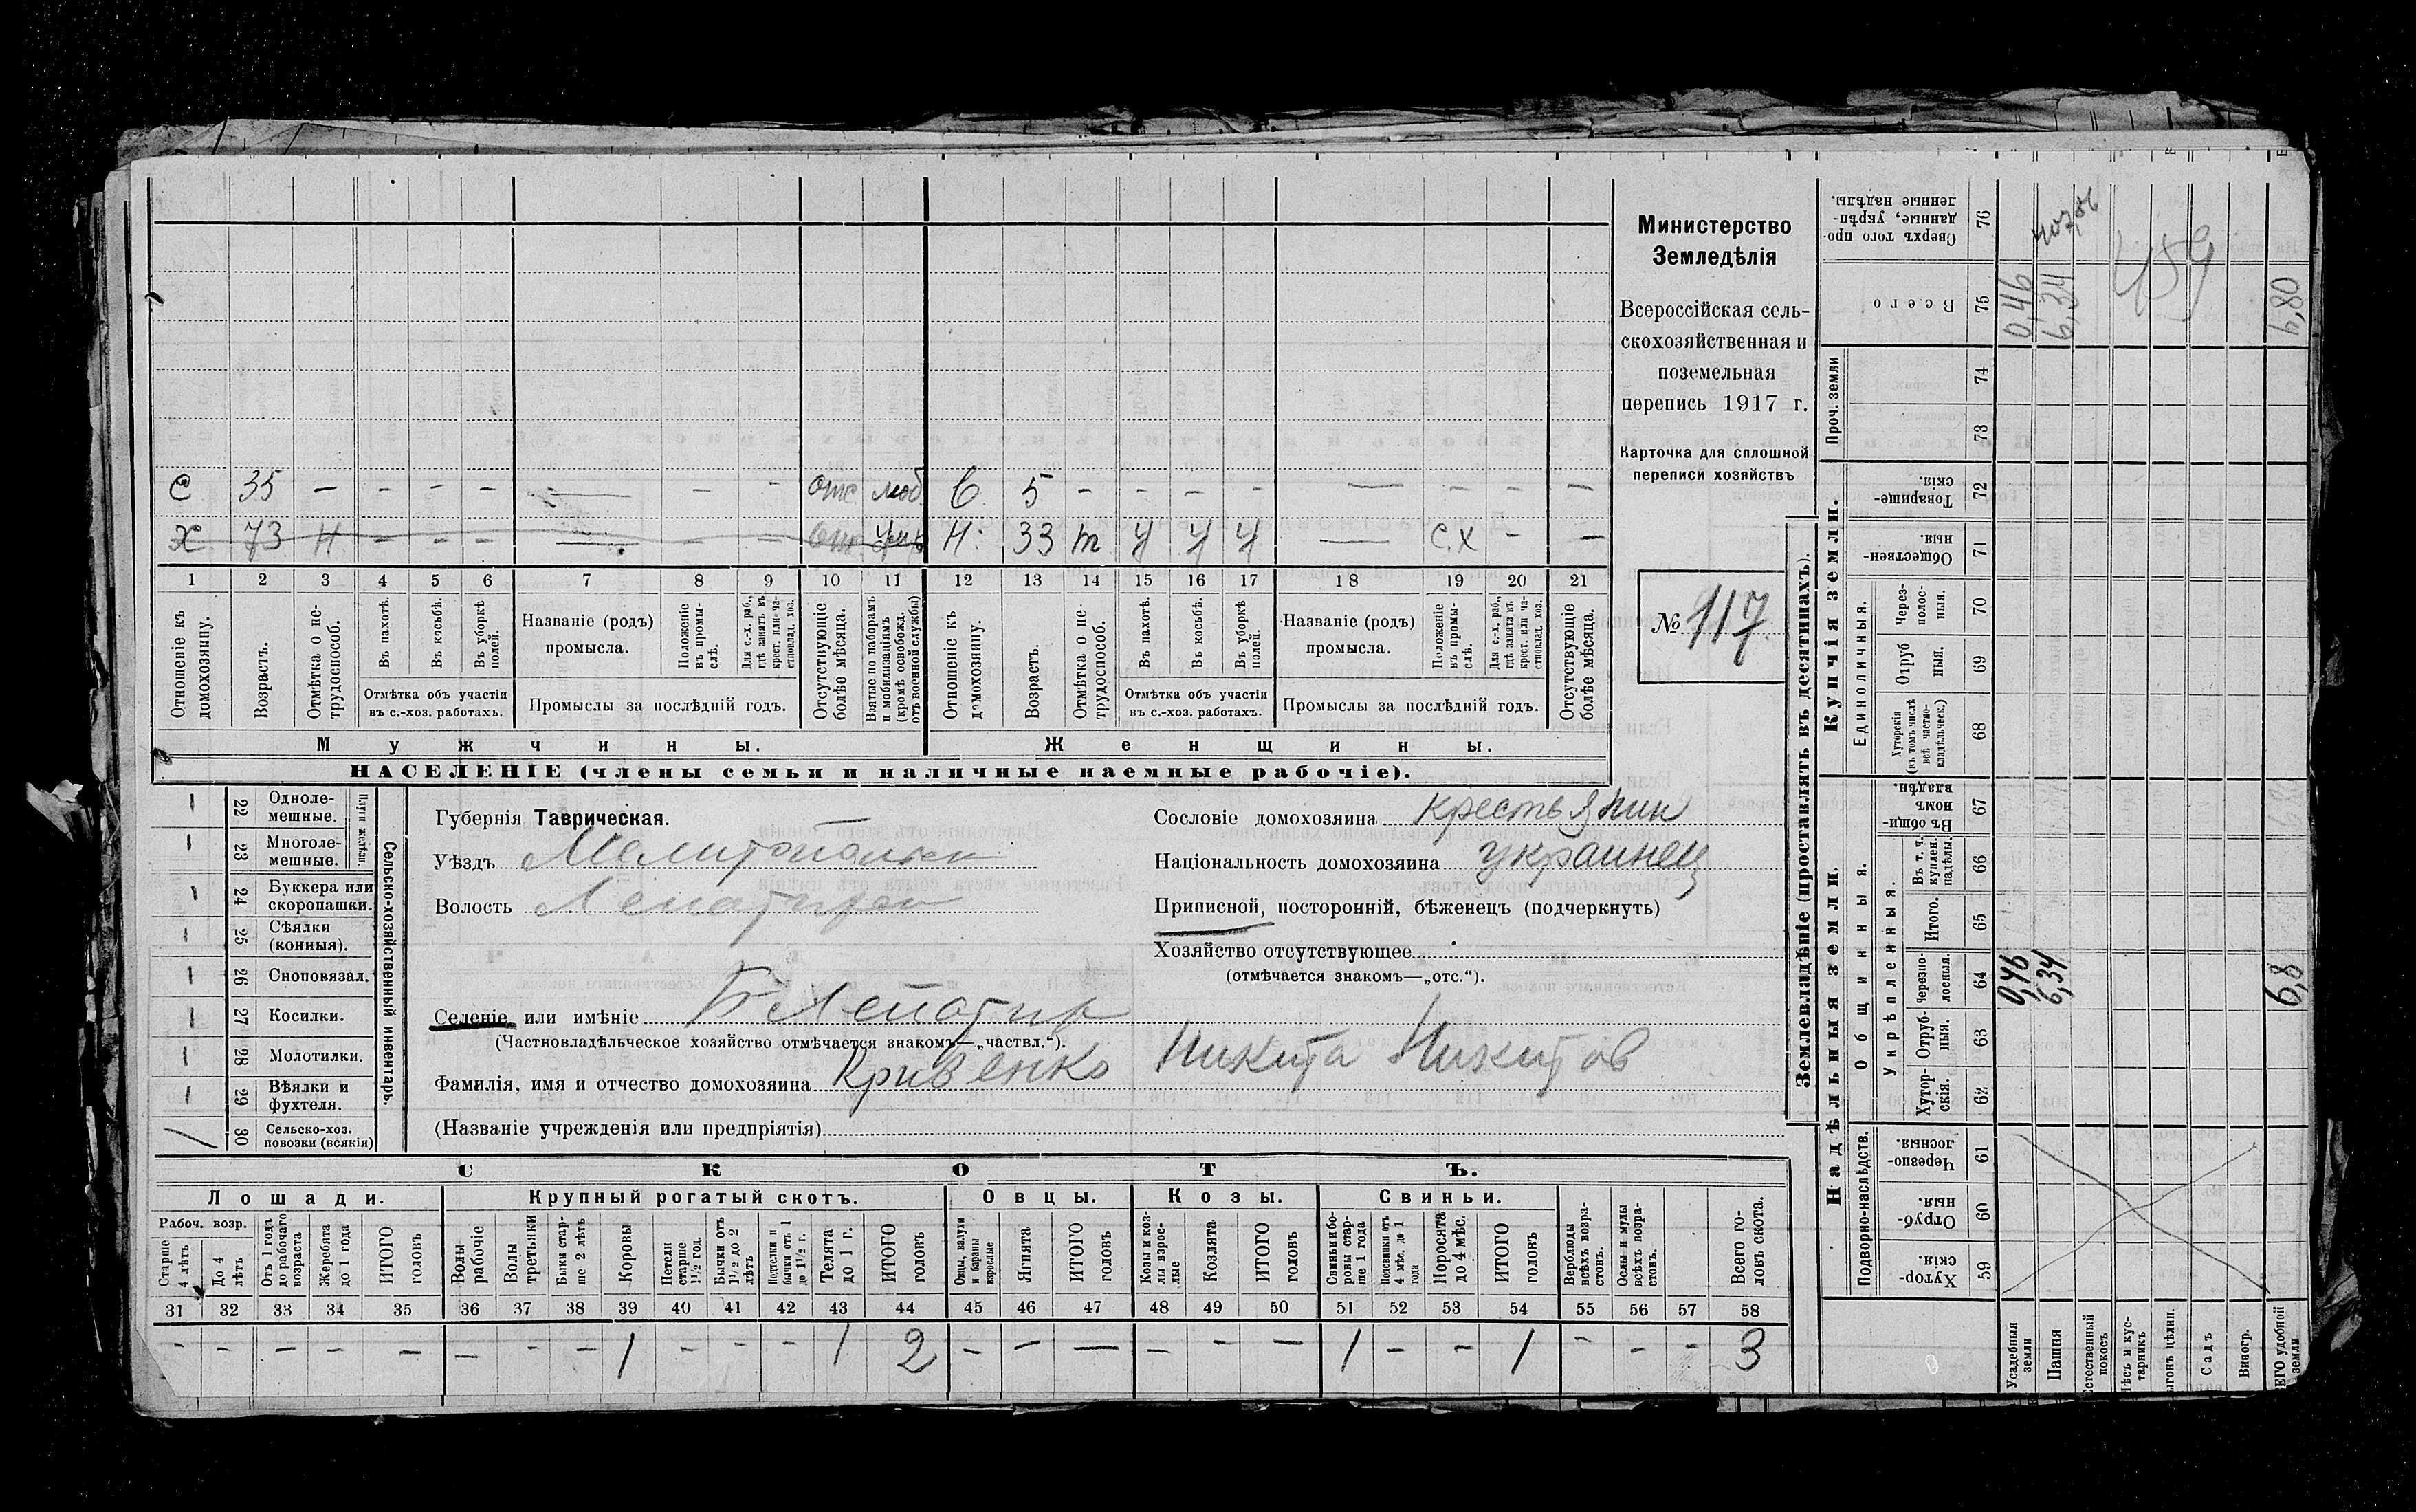 Министерство
Земледѣлія
Всероссійская сель-
скохозяйственная и
поземельная
перепись 1917 г.
Карточка для сплошной
переписи хозяйствъ
№ 117
с 35 — — — — — — — отс моб в 5 — — — — — — — —
х 73 н — — — — — — н 33 т у у у — с.х — —
1 2 3 4 5 6 7 8 9 10 11 12 13 14 15 16 17 18 19 20 21
Отношеніе къ домохозяину.
Возрастъ.
Отмѣтка о не-трудоспособ.
Въ пахотѣ.
Въ косьбѣ.
Въ уборкѣ полей.
Отмѣтка объ участіи
въ с.-хоз. работахъ.
Названіе (родъ)
промысла.
Положеніе въ промы-слѣ.
Для с.-х. раб., гдѣ занятъ въ крест. или ча-стновлад. хоз.
Промыслы за послѣдній годъ.
Отсутствующіе болѣе мѣсяца.
Взятые по наборамъ и мобилизаціямъ (кромѣ освобожд. отъ военной службы)
Отношеніе къ домохозяину.
Возрастъ.
Отмѣтка о не-трудоспособ.
Въ пахотѣ.
Въ косьбѣ.
Въ уборкѣ полей.
Отмѣтка объ участіи
въ с.-хоз. работахъ.
Названіе (родъ)
промысла.
Положеніе въ промы-слѣ.
Для с.-х. раб., гдѣ занята въ крест. или ча-стновлад. хоз.
Промыслы за послѣдній годъ.
Отсутствующіе болѣе мѣсяца.
Мужчины. Женщины.
НАСЕЛЕНІЕ (члены семьи и наличные наемные рабочіе).
22 Одноле-мешные.
23 Многоле-мешные.
Плуги желѣзн.
24 Буккера или скоропашки.
25 Сѣялки (конныя).
26 Сноповязал.
27 Косилки.
28 Молотилки.
29 Вѣялки и фухтеля.
30 Сельско-хоз. повозки (всякія)
Сельско-хозяйственный инвентарь.
Губернія Таврическая.
Уѣздъ Мелитопольск
Волость Лепатихск
Селеніе или имѣніе Б Лепатих
(Частновладѣльческое хозяйство отмѣчается знакомъ—„частвл.“).
Фамилія, имя и отчество домохозяина Кривенко Никита Никитов
(Названіе учрежденія или предпріятія)
Сословіе домохозяина крестьянин
Національность домохозяина украинец
Приписной, посторонній, бѣженецъ (подчеркнуть)
Хозяйство отсутствующее
(отмѣчается знакомъ—„отс.“).
СКОТЪ.
Лошади. Крупный рогатый скотъ. Овцы. Козы. Свиньи.
Рабоч. возр.
Старше 4 лѣтъ
До 4 лѣтъ
Отъ 1 года до рабочаго возраста
Жеребята до 1 года
ИТОГО головъ
Волы рабочіе
Волы третьяки
Быки стар-ше 2 лѣтъ
Коровы
Петели старше 1½ год.
Бычки отъ 1½ до 2 лѣтъ
Подтелки и бычки отъ 1 до 1½ г.
Телята до 1 г.
ИТОГО головъ
Овцы, валухи и бараны взрослые
Ягнята
ИТОГО головъ
Козы и коз-лы взрос-лые
Козлята
ИТОГО головъ
Свиньи и бо-ровы стар-ше 1 года
Подсвинки отъ 4 мѣс. до 1 года
Поросята до 4 мѣс.
ИТОГО головъ
Верблюды всѣхъ возра-стовъ.
Ослы и мулы всѣхъ возра-стовъ.
Всего го-ловъ скота.
31 32 33 34 35 36 37 38 39 40 41 42 43 44 45 46 47 48 49 50 51 52 53 54 55 56 57 58
— — — — — — — — 1 — — — 1 2 — — — — — — 1 — — 1 — — — 3
Землевладѣніе (проставлять въ десятинахъ).
Надѣльныя земли. Купчія земли. Проч. земли
Подворно-наслѣдств.
Общинныя.
Укрѣпленныя.
Единоличныя.
59 Хутор-скія.
60 Отруб-ныя.
61 Черезпо-лосныя.
62 Хутор-скія.
63 Отруб-ныя.
64 Черезпо-лосныя.
65 Итого.
66 Въ т. ч. куплен. надѣлы.
67 Въ общи-номъ владѣн.
68 Хуторскія (въ томъ числѣ всѣ частно-владѣльческ.)
69 Отруб ныя.
70 Через-полос-ныя.
71 Обществен-ныя
72 Товарище-скія.
73
74
75 Всего
76 Сверхъ того про-данные, укрѣп-ленные надѣлы.
Усадебныя земли 0,46 0,46
Пашня 6,34 6,34
Естественный покосъ
Лѣсъ и кус-тарникъ
Выгонъ цѣлин.
Садъ
Виногр.
ВСЕГО удобной земли 6,8 6,80
459